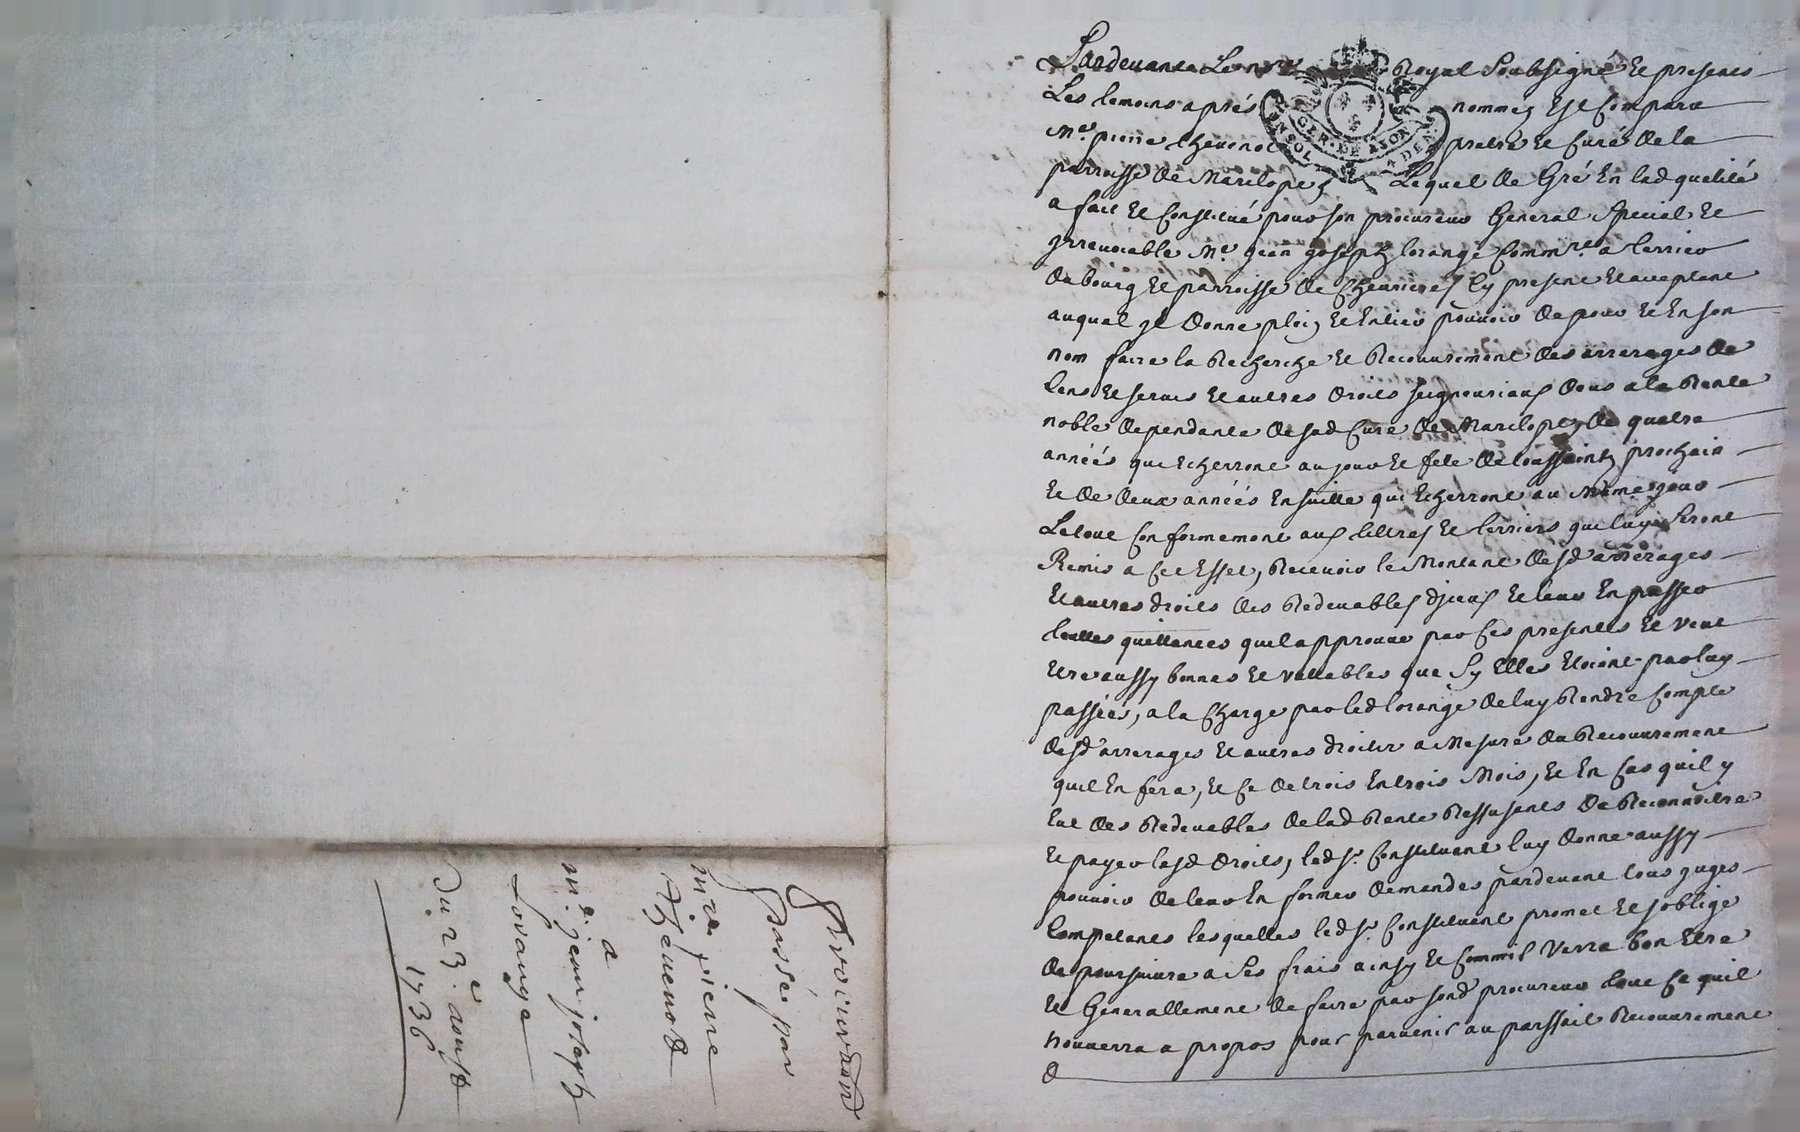 Pardevant Le no.re Royal Soubsigné Et presents
Les temoins aprés nommés Est Comparu
M.e pierre thevenot pretre Et Curé de la
parroisse de Marclopt Lequel de Gré En lad qualité
a fait Et Constitué pour son procureur General Special Et
jrrevocable M.e jean joseph lorange Comm.re a terrier
du bourg Et parroisse de Chevrieres Cy present Et acceptant
auquel jl donne plein Et Entier pouvoir de pour Et En son
nom faire la Recherche Et Recouvrement des arrerages de
Cens Et servis Et autres droits seigneuriaux deus a la Rente
noble dependante de sad Cure de Marclopt de quatre
années qui Echerront au jour Et fete de toussaints prochain
Et de deux années Ensuitte qui Echerront au même jour
Le tout Conformement aux lettres Et terriers qui luy seront
Remis a Cet Effet, Recevoir le Montant desd arrerages
Et autres droits des Redevables d'jceux Et leur En passer
touttes quittances quil approuve par Ces presentes Et veut
Etre aussy bonnes Et vallables que Sy Elles Etoint par luy
passées, a la Charge par led lorange de luy Rendre Compte
desd arrerages Et autres droits a Mesure du Recouvrement
quil En fera, Et Ce de trois En trois Mois, Et En Cas quil y
Eut des Redevables de lad Rente Reffusants de Reconnoitre
Et payer lesd droits, led s.r Constituant luy donne aussy
pouvoir de leur En former demandes pardevant tous juges
Competants lesquelles led s.r Constituant promet Et soblige
de poursuivre a Ses frais ainsy Et Comme Verra bon Etre
Et Generallement de faire par sond procureur tout Ce quil
trouverra a propos pour parvenir au parffait Recouvrement
Procura&ation
Passée par
m.re pierre
thevenot
a
m.e jean joseph
Lorange
Du 23.e aoust
1736